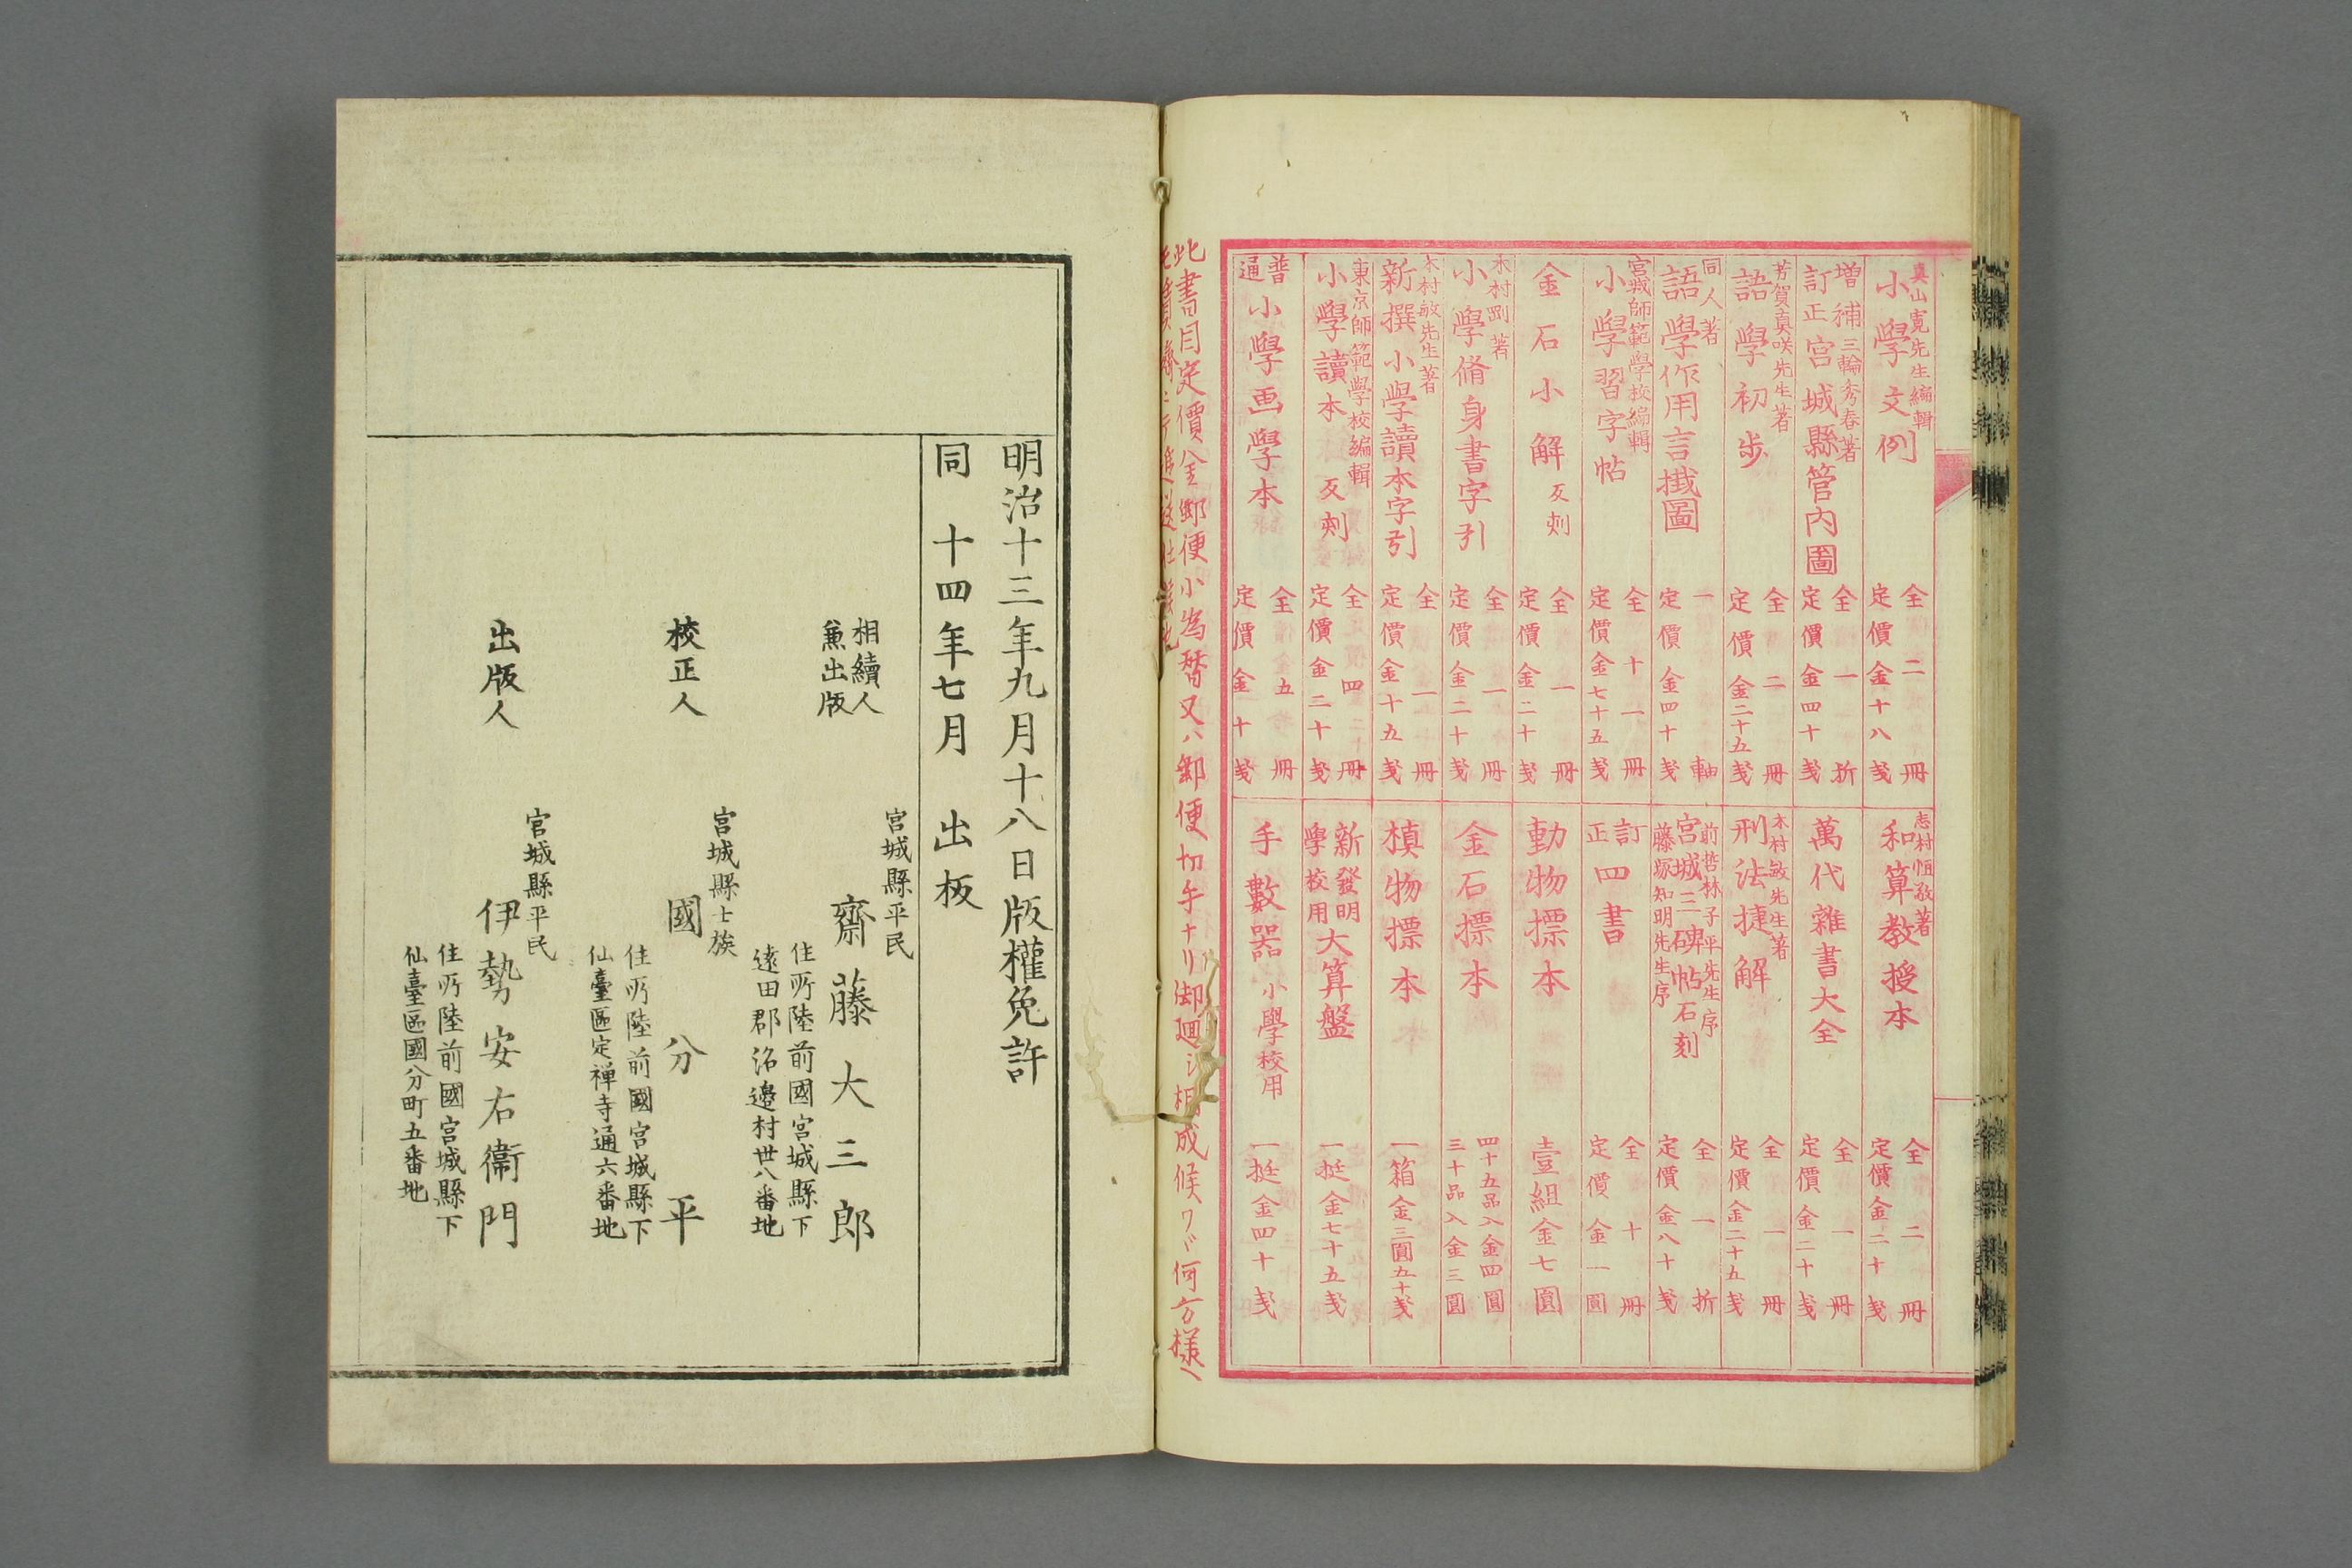 真山寛先生編輯
小學文例
全二冊
定價金十八戔
増補訂正 三輪秀春著
宮城縣管内圖
全一折
定價金四十戔
芳賀真咲先生著
語學初歩
全二冊
定價金二十五戔
同人著
語學作用言掛圖
一軸
定價金四十戔
宮城師範學校編輯
小學習字帖
全十一冊
定價金七十五戔
金石小解 反刻
全一冊
定價金二十戔
木村剛著
小學脩身書字引
全一冊
定價金二十戔
木村敏先生著
新撰小學讀本字引
全一冊
定價金十五戔
東京師範學校編輯
小學讀本 反刻
全四冊
定價金三十戔
普通小學画學本
全五冊
定價金十戔
志村恒敬著
和算教授本
全二冊
定價金二十戔
萬代雜書大全
全一冊
定價金二十戔
木村敏先生著
刑法捷解
全一冊
定價金二十五戔
前哲林子平先生序
宮城三碑帖石刻
藤塚知明先生序
全一折
定價金八十戔
訂正四書
全十冊
定價金一圓
動物標本
壹組金七圓
金石標本
四十五品入金四圓
三十品入金三圓
植物標本
一箱金三圓五十戔
新發明學校用大算盤
一挺金七十五戔
手數器 小學校用
一挺金四十戔
此書目定價金郵便小為替又ハ郵便切手ナリ御廻シ相成候ワバ何方様ヘ
明治十三年九月十八日版權免許
同 十四年七月 出板
相續人
兼出版
宮城縣平民
齋藤大三郎
住所陸前國宮城縣下
遠田郡沼邉村丗八番地
校正人
宮城縣士族
國分平
住所陸前國宮城縣下
仙臺區定禅寺通六番地
出版人
宮城縣平民
伊勢安右衞門
住所陸前國宮城縣下
仙臺區國分町五番地